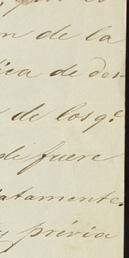 n de la
ica de des-
de los q.e
de fuere
iatamente.
prévia